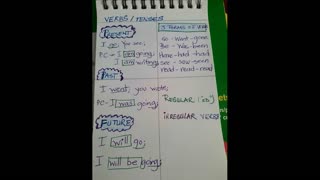 VERBS / TENSES
PRESENT
I go, you see;
PC → I am going;
I am writing;
PAST
I went, you wrote;
PC - I was going;
FUTURE
I will go;
I will be going;
3 FORMS OF VERB
Go - Went - gone
Be - Was - been
Have - had - had
See - saw - seen
Read - read - read
REGULAR ('ed')
IRREGULAR VERBS